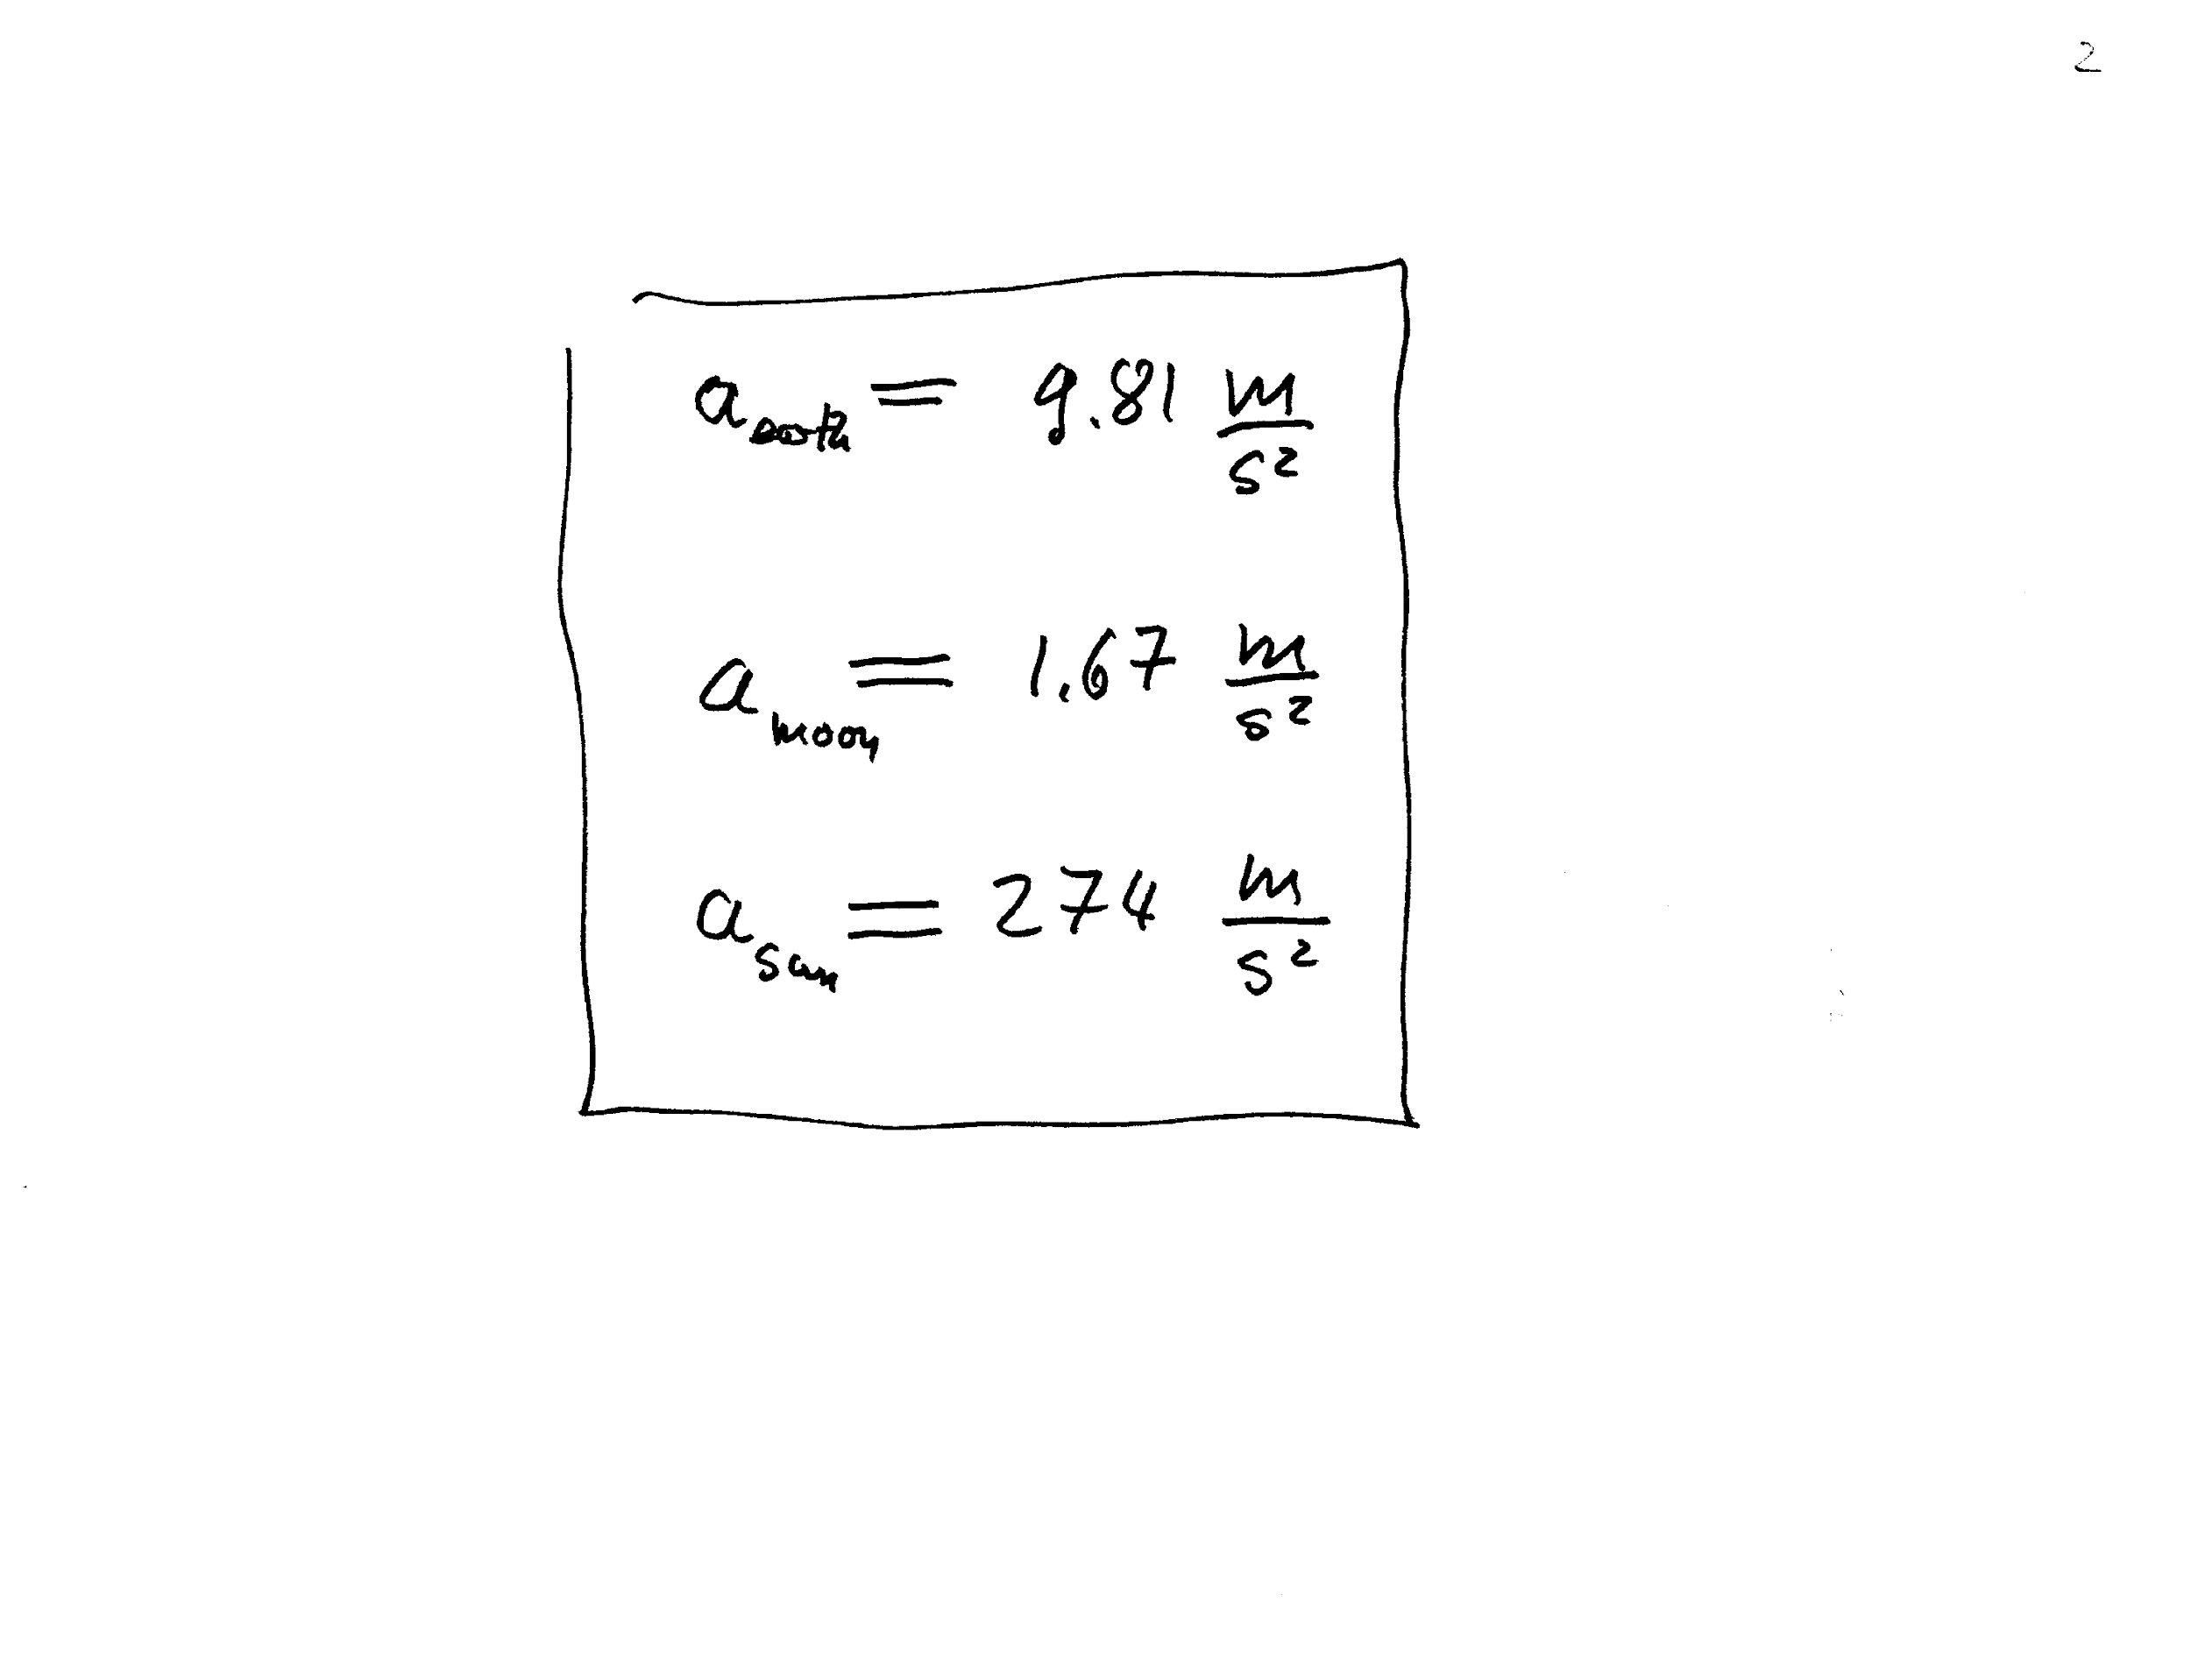 2
a_earth = 9.81 m/s²
a_moon = 1.67 m/s²
a_sun = 274 m/s²